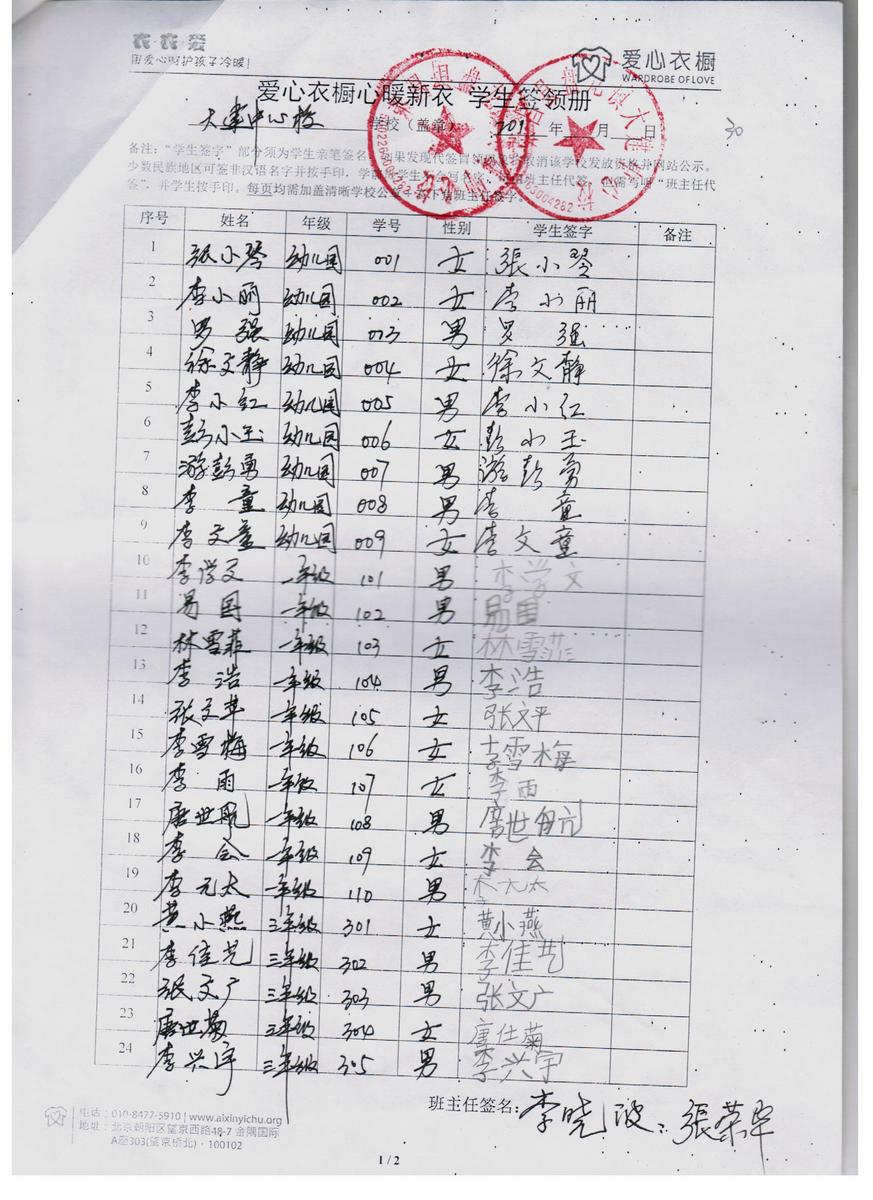 衣衣爱
用爱心呵护孩子冷暖!
爱心衣橱
WARDROBE OF LOVE
爱心衣橱心暖新衣 学生签领册
大 中心校 学校(盖章) 201 年 月 日
30
备注:"学生签字"部分须为学生亲笔签名,如果发现代签冒领 取消该学校发放资格并网站公示。
少数民族地区可签非汉语名字并按手印。学 班主任代签,但需写明"班主任代
签",并学生按手印。每页均需加盖清晰学校公章 班主任签字。
序号 姓名 年级 学号 性别 学生签字 备注
1 张小琴 幼儿园 001 女 張小琴
2 李小丽 幼儿园 002 女 李小丽
3 罗强 幼儿园 003 男 罗强
4 徐文静 幼儿园 004 女 徐文静
5 李小红 幼儿园 005 男 李小红
6 彭小玉 幼儿园 006 女 彭小玉
7 游彭勇 幼儿园 007 男 游彭勇
8 李童 幼儿园 008 男 李童
9 李文童 幼儿园 009 女 李文童
10 李学文 一年级 101 男 李学文
11 易国 一年级 102 男 易国
12 林雪菲 一年级 103 女 林雪菲
13 李浩 一年级 104 男 李浩
14 张文苹 一年级 105 女 张文平
15 李雪梅 一年级 106 女 李雪梅
16 李雨 一年级 107 女 李雨
17 唐世航 一年级 108 男 唐世航
18 李会 一年级 109 女 李会
19 李元太 一年级 110 男 李元太
20 黄小燕 三年级 301 女 黄小燕
21 李佳艺 三年级 302 男 李佳艺
22 张文广 三年级 303 男 张文广
23 唐世菊 三年级 304 女 唐仕菊
24 李兴宇 三年级 305 男 李兴宇
班主任签名: 李晓波; 張荣华
电话:010-8477-5910 | www.aixinyichu.org
地址:北京朝阳区望京西路48-7 金隅国际
A座303(望京桥北)·100102
1 / 2